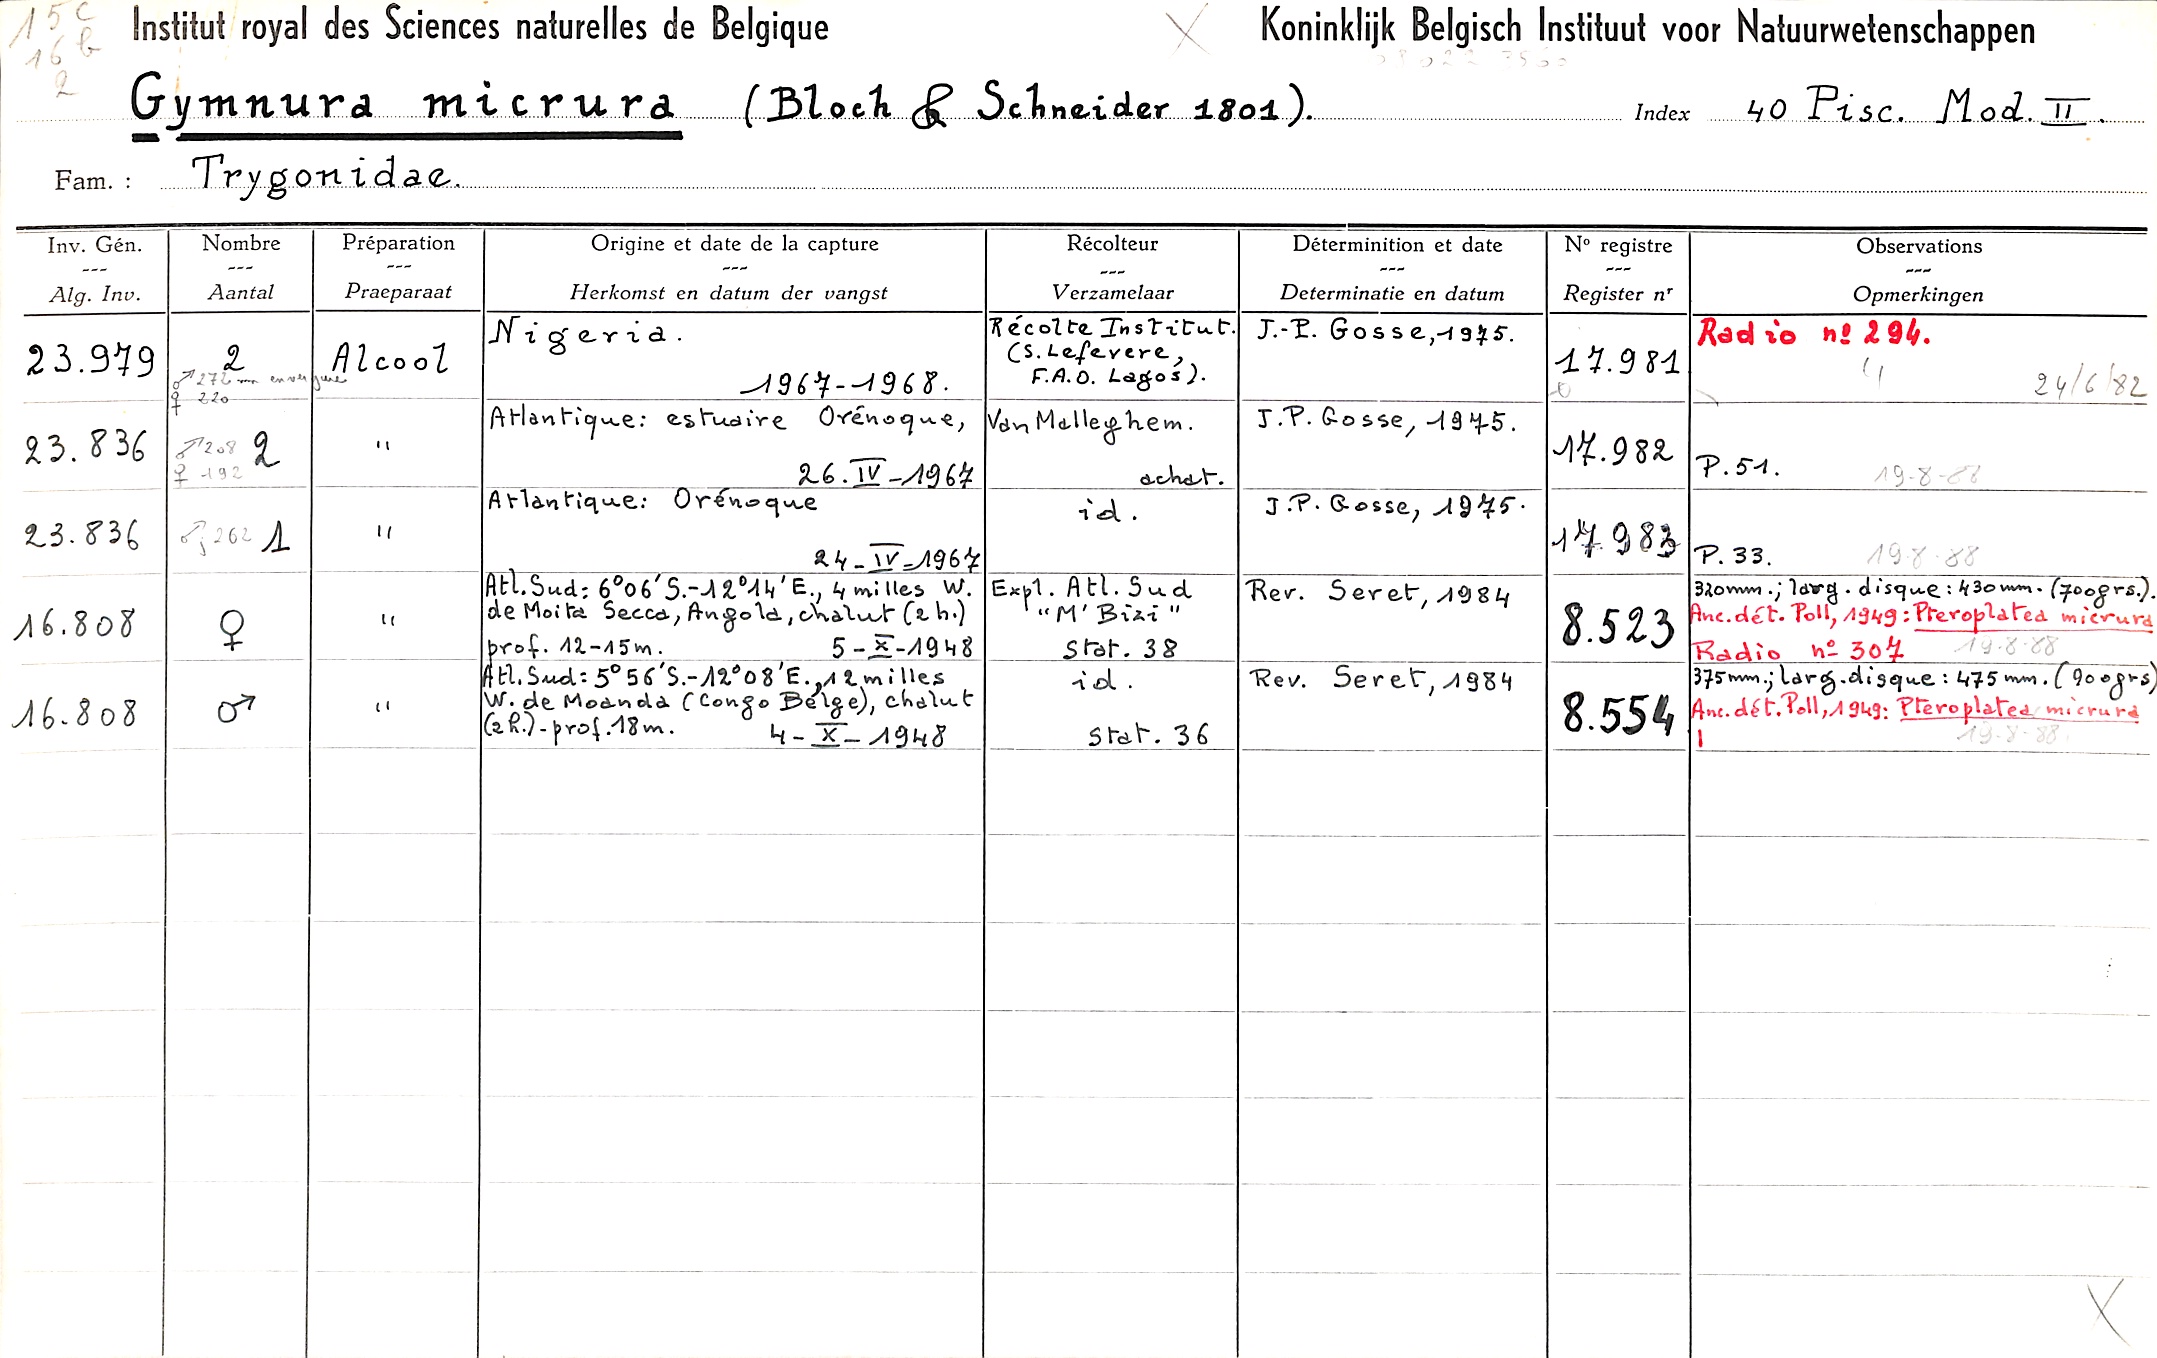 15c
16b
2
Institut royal des Sciences naturelles de Belgique
Koninklijk Belgisch Instituut voor Natuurwetenschappen
Gymnura micrura (Bloch & Schneider 1801). Index 40 Pisc. Mod. II.
Fam. : Trygonidae.
Inv. Gén. --- Alg. Inv.
Nombre --- Aantal
Préparation --- Praeparaat
Origine et date de la capture --- Herkomst en datum der vangst
Récolteur --- Verzamelaar
Déterminition et date --- Determinatie en datum
Nº registre --- Register nʳ
Observations --- Opmerkingen
23.979
2
♂ 272 mm envergure
♀ 220
Alcool
Nigeria.
1967-1968.
Récolte Institut.
(S. Lefevere,
F.A.O. Lagos).
J.-P. Gosse, 1975.
17.981
Radio nº 294.
24/6/82
23.836
♂ 208 2
♀ 192
"
Atlantique: estuaire Orénoque,
26.IV-1967
Van Malleghem.
achat.
J.P. Gosse, 1975.
17.982
P.51.
19-8-88
23.836
♂ 262 1
"
Atlantique: Orénoque
24-IV-1967
id.
J.P. Gosse, 1975.
17.983
P. 33.
19-8-88
16.808
♀
"
Atl. Sud: 6°06'S.-12°14'E., 4 milles W.
de Moita Secca, Angola, chalut (2h.)
prof. 12-15m. 5-X-1948
Expl. Atl. Sud
"M'Bizi"
Stat. 38
Rev. Seret, 1984
8.523
320mm.; larg. disque: 430mm. (700grs.).
Anc. dét. Poll, 1949: Pteroplatea micrura
Radio nº 307 19-8-88
16.808
♂
"
Atl. Sud: 5°56'S.-12°08'E., 12 milles
W. de Moanda (Congo Belge), chalut
(2h.)-prof. 18m. 4-X-1948
id.
Stat. 36
Rev. Seret, 1984
8.554
375mm.; larg. disque: 475mm. (900grs)
Anc. dét. Poll, 1949: Pteroplatea micrura
19-8-88